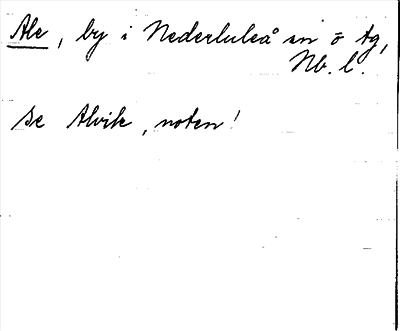 Ale, by i Nederluleå sn ö tg,
Nb. l.
se Alvik, noten!